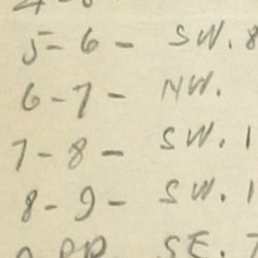 5-6- SW. 8
6-7- NW.
7-8- SW. 1
8-9- SW. 1
SE. 7